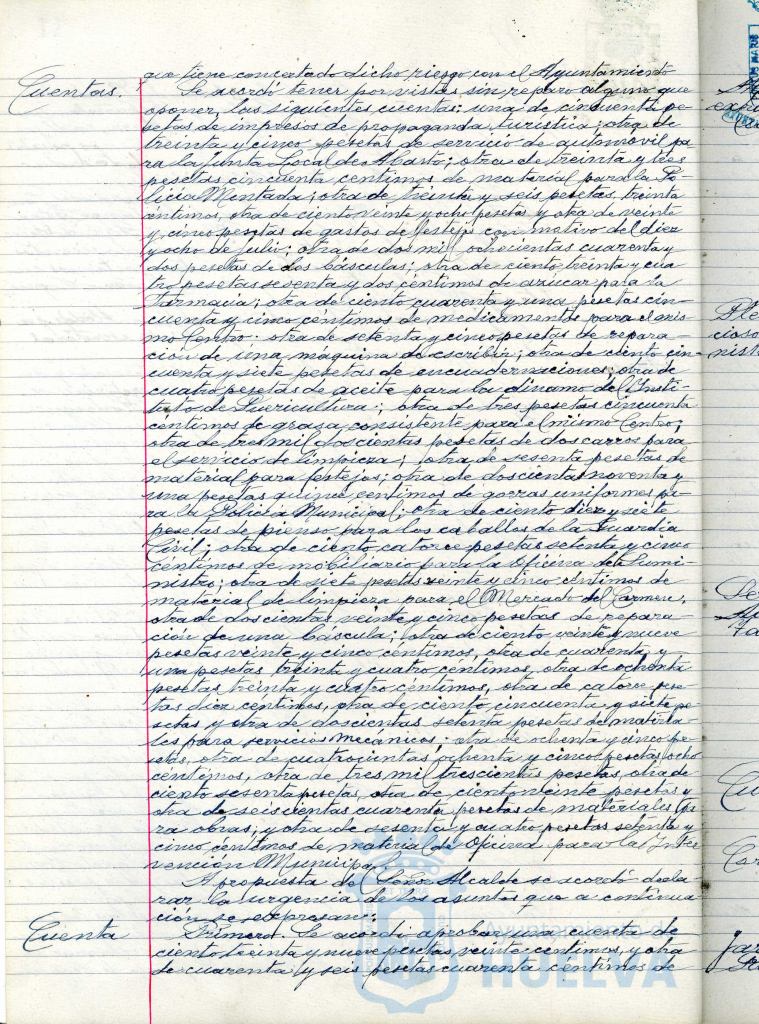 que tiene concertado dicho riesgo con el Ayuntamiento
Cuentas. Se acordó tener por vistas sin reparo alguno que
oponer, las siguientes cuentas: una de cincuenta pe-
setas de impresos de propaganda turística; otra de
treinta y cinco pesetas de servicio de automovil pa
ra la Junta Local de Abasto; otra de treinta y tres
pesetas cincuenta centimos de material para la Po-
licia Montada; otra de treinta y seis pesetas, treinta
céntimos, otra de ciento veinte y ocho pesetas y otra de veinte
y cinco pesetas de gastos de festejos con motivo del diez
y ocho de julio; otra de dos mil ochocientas cuarenta y
dos pesetas de dos básculas; otra de ciento treinta y cua
tro pesetas sesenta y dos céntimos de azúcar para la
Farmacia; otra de ciento cuarenta y una pesetas cin-
cuenta y cinco céntimos de medicamentos para el mis-
mo Centro; otra de setenta y cinco pesetas de repara-
ción de una maquina de escribir; otra de ciento cin-
cuenta y siete pesetas de encuadernaciones; otra de
cuatro pesetas de aceite para la dinamo del Insti-
tuto de Puericultura; otra de tres pesetas cincuenta
centimos de grasa consistente para el mismo Centro;
otra de tres mil doscientas pesetas de dos carros para
el servicio de limpieza; otra de sesenta pesetas de
material para festejos; otra de doscientas noventa y
una pesetas quince centimos de gorras uniformes pa-
ra la Policia Municipal; otra de ciento diez y siete
pesetas de pienso para los caballos de la Guardia
Civil; otra de ciento catorce pesetas setenta y cinco
céntimos de mobiliario para la Oficina de Sumi-
nistro; otra de siete pesetas veinte y cinco centimos de
material de limpieza para el Mercado del Carmen;
otra de doscientas veinte y cinco pesetas de repara-
ción de una báscula; otra de ciento veinte y nueve
pesetas veinte y cinco céntimos, otra de cuarenta y
una pesetas treinta y cuatro céntimos, otra de ochenta
pesetas, treinta y cuatro céntimos, otra de catorce pese-
tas diez céntimos, otra de ciento cincuenta y siete pe
setas y otra de doscientas setenta pesetas de materia-
les para servicios mecánicos; otra de ochenta y cinco pe-
setas, otra de cuatrocientas ochenta y cinco pesetas ocho
centimos, otra de tres mil trescientas pesetas, otra de
ciento sesenta pesetas, otra de ciento veinte pesetas y
otra de seiscientas cuarenta pesetas de materiales pa
ra obras; y otra de sesenta y cuatro pesetas setenta y
cinco céntimos de material de Oficina para la Inter
vención Municipal
A propuesta del Señor Alcalde se acordó decla-
rar la urgencia de los asuntos que a continua-
ción se expresan:
Cuenta Primero. Se acordó aprobar una cuenta de
ciento treinta y nueve pesetas, veinte centimos, y otra
de cuarenta y seis pesetas cuarenta centimos de
HUELVA